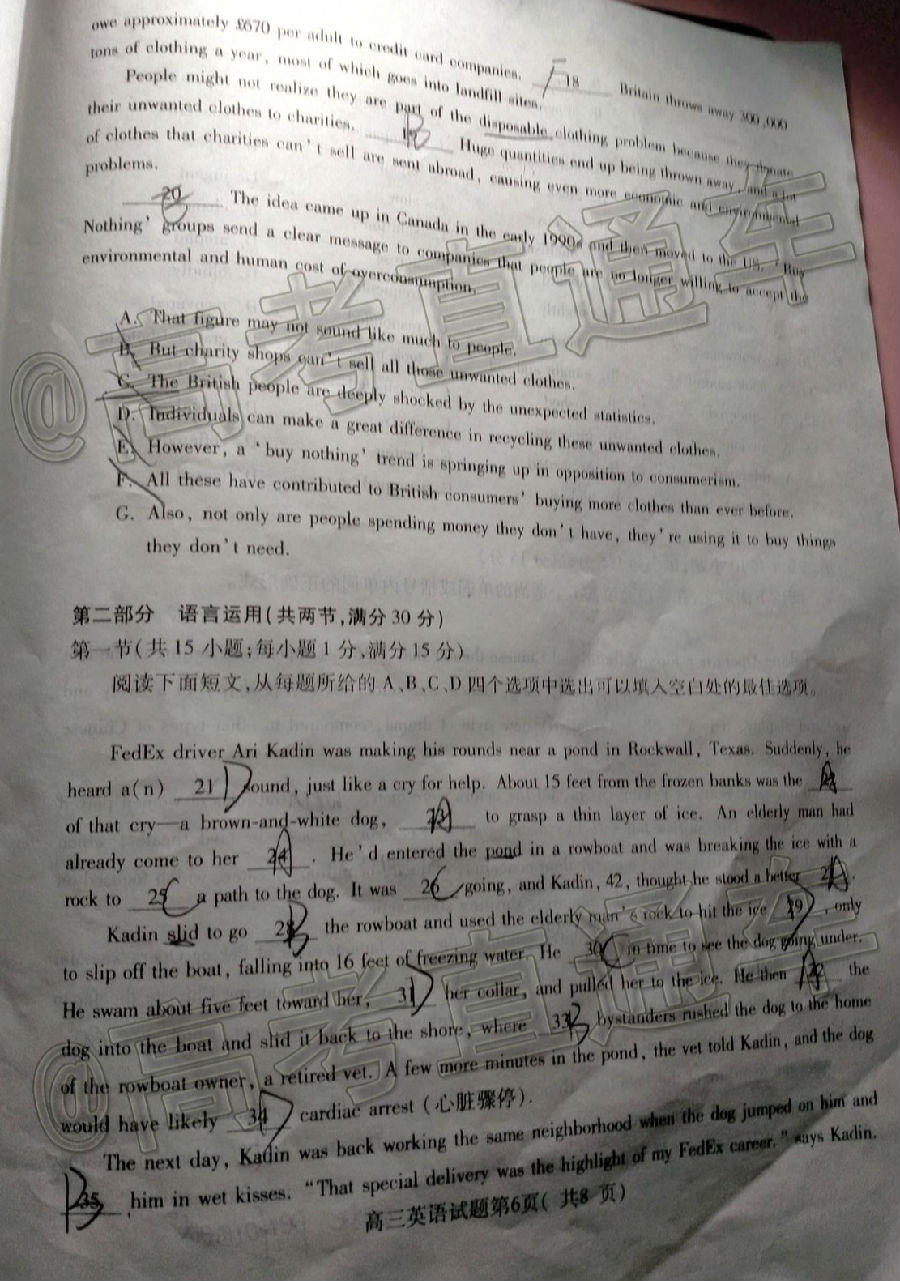 owe approximately £670 per adult to credit card companies. F 18 Britain throws away 300,000
tons of clothing a year, most of which goes into landfill sites.
People might not realize they are part of the disposable clothing problem because they donate
their unwanted clothes to charities. B Huge quantities end up being thrown away, and a lot
of clothes that charities can't sell are sent abroad, causing even more economic and environmental
problems.
20 The idea came up in Canada in the early 1990s and then moved to the US. 'Buy
Nothing' groups send a clear message to companies that people are no longer willing to accept the
environmental and human cost of overconsumption.
A. That figure may not sound like much to people.
B. But charity shops can't sell all those unwanted clothes.
C. The British people are deeply shocked by the unexpected statistics.
D. Individuals can make a great difference in recycling these unwanted clothes.
E. However, a 'buy nothing' trend is springing up in opposition to consumerism.
F. All these have contributed to British consumers' buying more clothes than ever before.
G. Also, not only are people spending money they don't have, they're using it to buy things
they don't need.
第二部分 语言运用(共两节,满分30分)
第一节(共15小题;每小题1分,满分15分)
阅读下面短文,从每题所给的A、B、C、D四个选项中选出可以填入空白处的最佳选项。
FedEx driver Ari Kadin was making his rounds near a pond in Rockwall, Texas. Suddenly, he
heard a(n) 21 D sound, just like a cry for help. About 15 feet from the frozen banks was the A
of that cry—a brown-and-white dog, 23 to grasp a thin layer of ice. An elderly man had
already come to her 24 A. He'd entered the pond in a rowboat and was breaking the ice with a
rock to 25 C a path to the dog. It was 26 C going, and Kadin, 42, thought he stood a better 27 A.
Kadin slid to go 28 B the rowboat and used the elderly man's rock to hit the ice 29 D, only
to slip off the boat, falling into 16 feet of freezing water. He 30 C in time to see the dog going under.
He swam about five feet toward her, 31 D her collar, and pulled her to the ice. He then 32 A the
dog into the boat and slid it back to the shore, where 33 B bystanders rushed the dog to the home
of the rowboat owner, a retired vet. A few more minutes in the pond, the vet told Kadin, and the dog
would have likely 34 D cardiac arrest (心脏骤停).
The next day, Kadin was back working the same neighborhood when the dog jumped on him and
B 35 him in wet kisses. "That special delivery was the highlight of my FedEx career," says Kadin.
高三英语试题第6页( 共8 页)
@高考直通车
@高考直通车